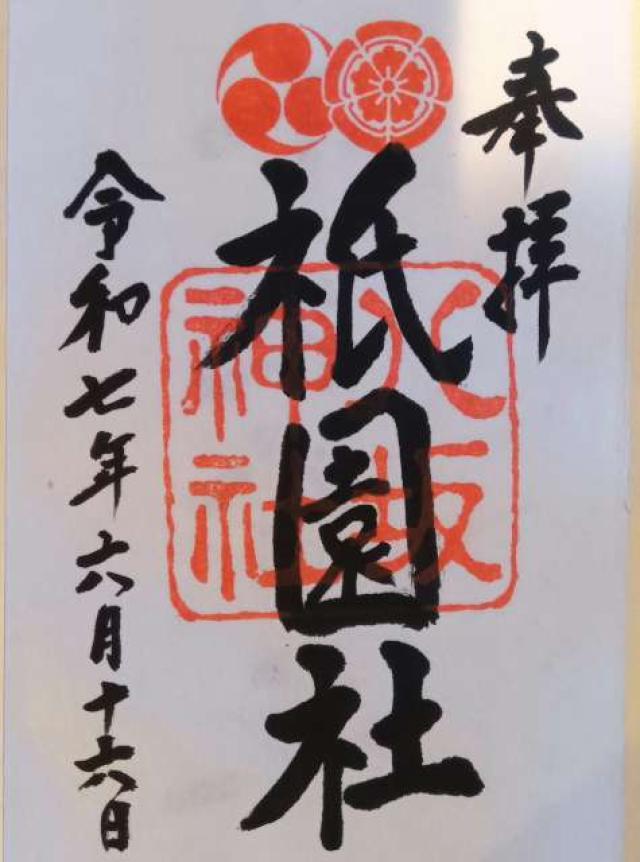 奉拝
祇園社
八坂
神社
令和七年六月十六日